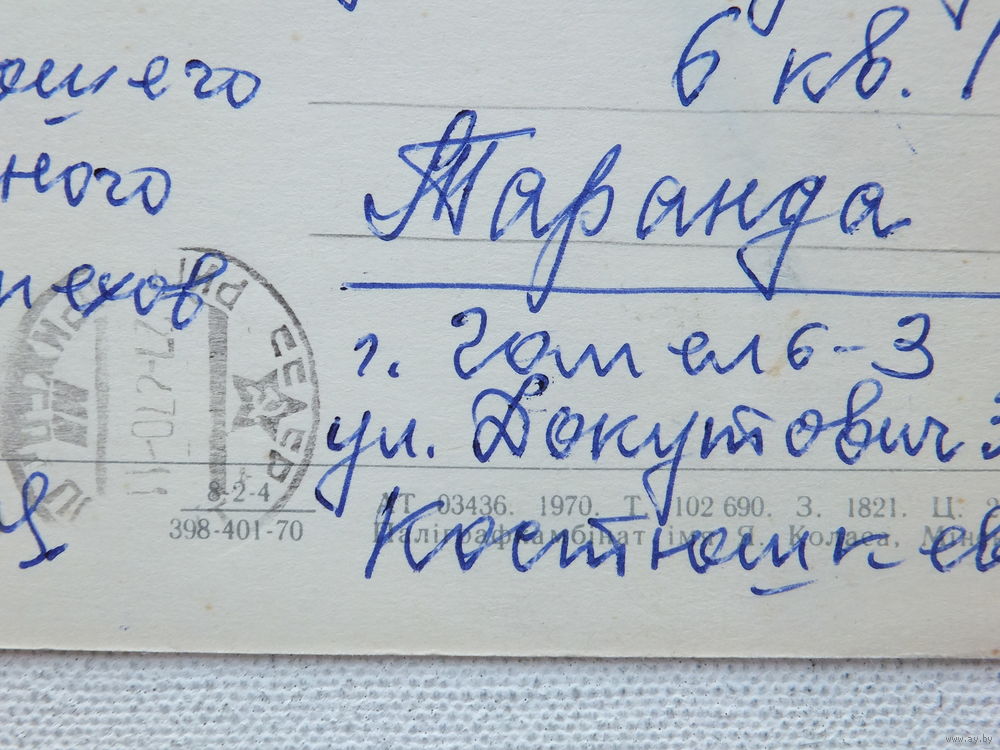 ошего
ного
пехов
6 кв. 1
Таранда
г. Гомель-3
ул. Докутович
Костюшкев
8-2-4
398-401-70
АТ 03436. 1970. Т. 102 690. З. 1821. Ц: 2
Паліграфкамбінат імя Я. Коласа, Мінс
www.ay.by